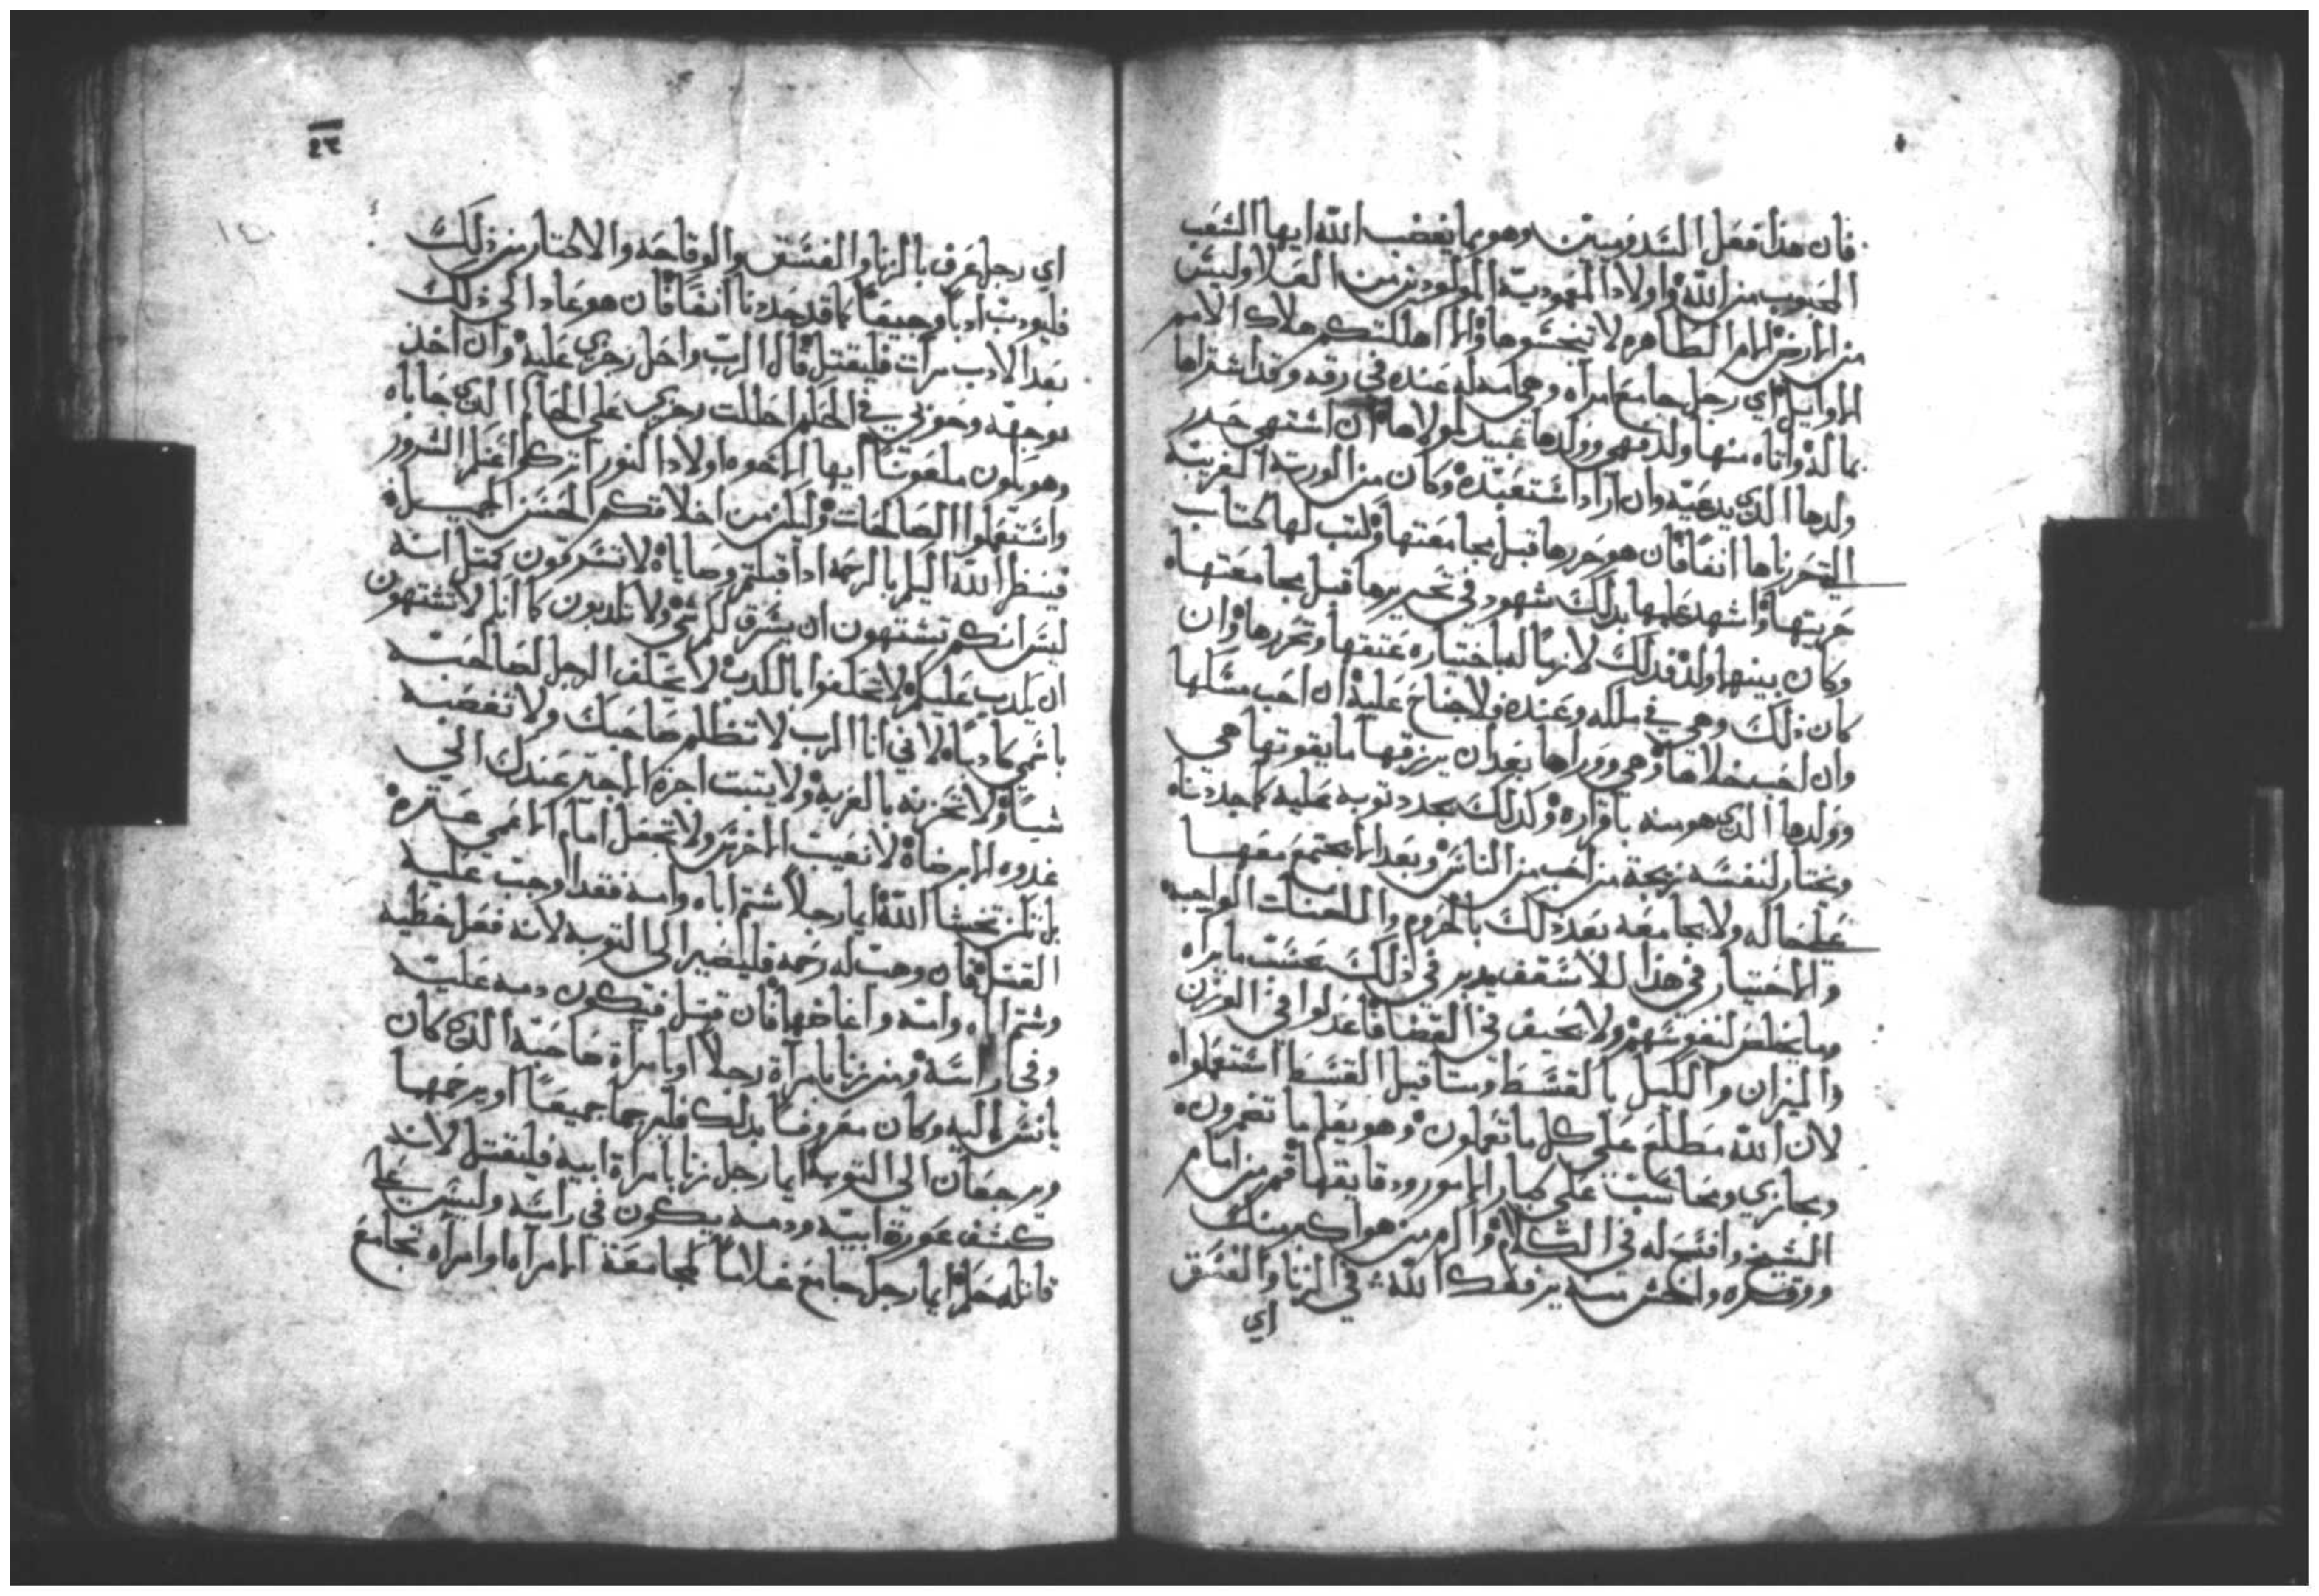 فان هذا فعل السدوميين وهو مما يغضب الله ايها الشعب
المحبوب من الله واولاد المعمودية المولودين من العلا وليس
من الارض الام الطاهره لا تنجسوها والا اهلكتكم هلاك الامم
الاوايل اي رجل جامع امراه وهي امه له عنده في رقه وقد اشتراها
بماله واتاه منها ولد فهي وولدها عبيد لمولاها ان اشتهي حرر
ولدها الذي يدعيه وان اراد استعبده وكان من الورثه الغريبه
التي حررناها انفا فان هو حررها قبل مجامعتها وكتب لها كتاب
حريتها واشهد عليها بذلك شهود في تحريرها قبل مجامعتها
وكان بينهما ولد فذلك لازما له باختياره عتقها وتحررها وان
كان ذلك وهي في ملكه وعنده فلا جناح عليه ان احب مسكها
وان احب خلاها وهي ووراها بعد ان يرزقها ما يقوتها هي
وولدها الذي هو منه باقراره وكذلك يجدد توبه عليه كما جددناه
ويختار لنفسه زيجة من احب من الناس وبعد الا يجتمع معها
علي حاله ولا يجامعه بعد ذلك بالحروم واللعنات الواجبه
والاختيار في هذا للاسقف يدبر في ذلك بحسب ما يراه
وما يخلص نفوسهم ولا يحيف في القضا فاعدلوا في الوزن
والميزان والكيل بالقسط ومثاقيل القسط استعملواه
لان الله مطلع على كل ما تعملون وهو يعلم ما تضمرون
ويجازي ويحاسب على كبار الامور ودقايقها قم من امام
الشيخ وافتح له في الكلام واكرم من هو اكبر منك
ووقره واخش منه يرفعك الله في الزنا والفسق
اي
٤٣
اي رجل عرف بالزنا والفسق والوقاحه والاكتار من ذلك
فليودب ادبا وجيعا كما قد حددنا انفا فان هو عاد الى ذلك
بعد الادب مرات فليقتل قال الرب واحل رجزي عليه وان اخذ
بوجهه وحوبي في الحكم احللت رجزي على الحاكم الذي حاباه
وهو يكون ملعونا ايها الاخوه اولاد النور اتركوا عنكم الشرور
واستعملوا الصالحات وليكن من اخلاقكم الحسن الجميل
فينظر الله اليكم بالرحمه اذا قبلتم وصاياه لا تسرقون كمثل انه
ليس انكم تشتهون ان يسرق لكم شي ولا تكدبون كما انكم لا تشتهون
ان يكدب عليكم لا تحلفوا بالكدب لا يحلف الرجل لصاحبه
باسمي كادبا لاني انا الرب لا تظلم صاحبك ولا تغصبه
شيا ولا تحزنه بالغربه ولا يتبت اجرة الاجير عندك الي
غدوه الابرضاه لا تعيب الاخرس ولا تجعل امام الاعمى عترة
بل تكن تخشا الله ايما رجلا شتم اباه وامه فقد اوجبت عليه
القتل فان وهبت له رحمه فليصير الى التوبه لانه فعل خطيه
وشتم اباه وامه واغاضهما فان قتل فتكون دمه عليه
وفي راسه ومن زنا بامراة رجلا او بامراة صاحبه الذي كان
يانس اليه وكان معروفا بذلك فليرجما جميعا او يرحمهما
ويرجعان الي التوبه ايما رجل زنا بامراة ابيه فليقتل لانه
كشف عورة ابيه ودمه يكون في راسه وليس على
قاتله حكم ايما رجل جامع غلاما كمجامعة الامراه او امراه تجامع